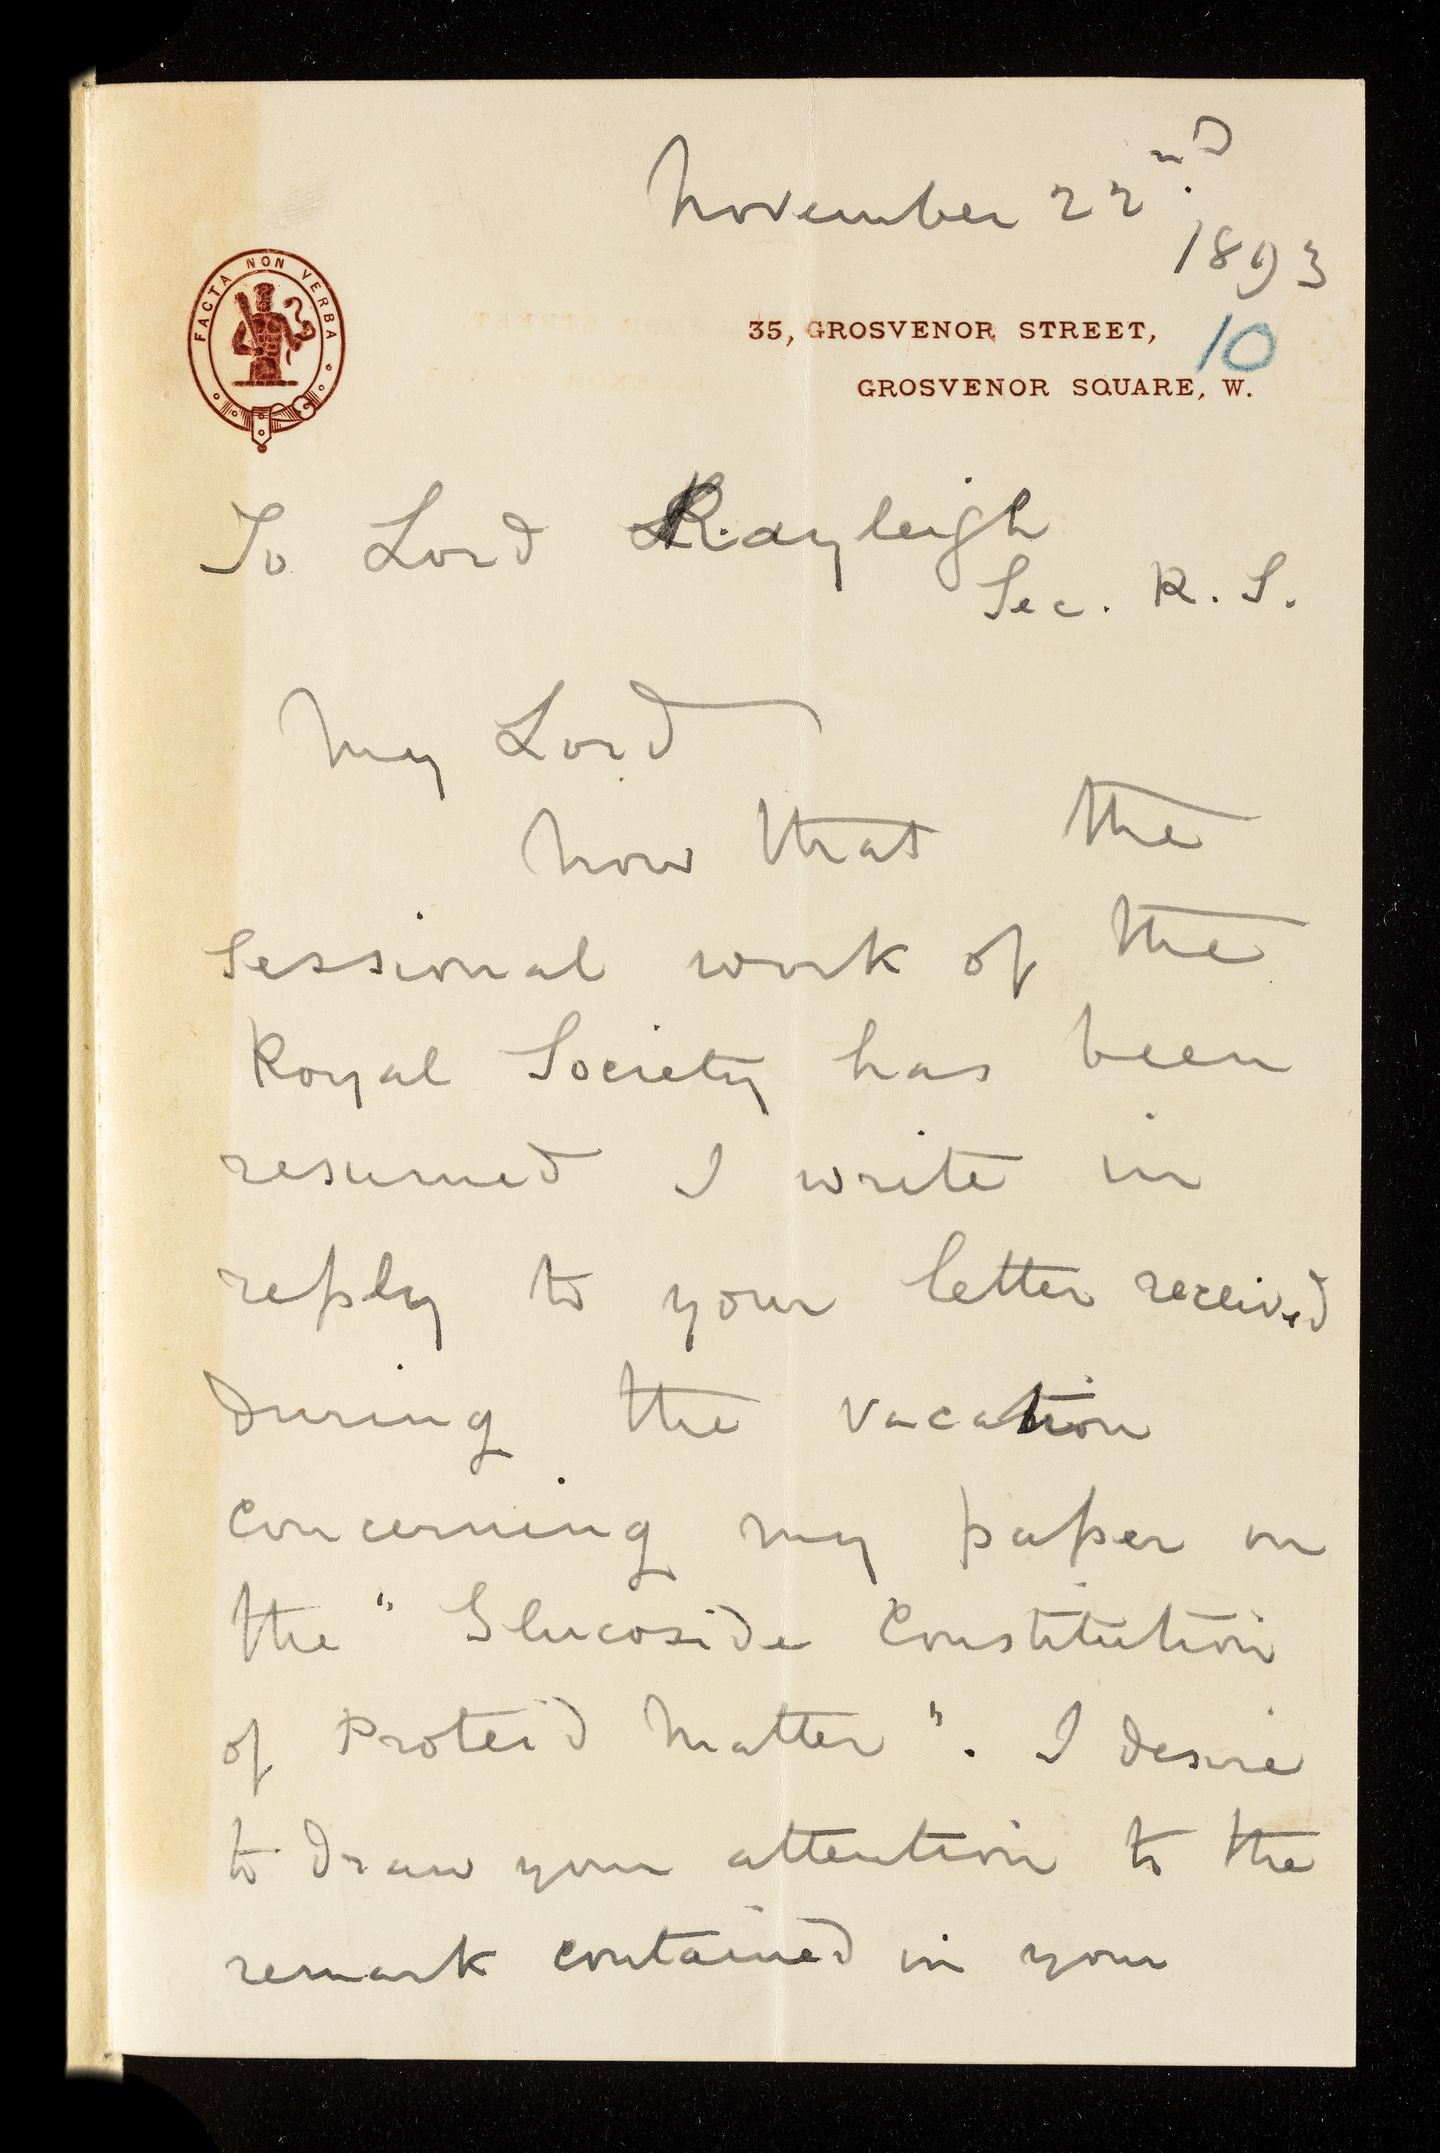 November 22nd.
1893
FACTA NON VERBA
35, GROSVENOR STREET,
10
GROSVENOR SQUARE, W.
To Lord Rayleigh
Sec. R. S.
My Lord
Now that the
Sessional work of the
Royal Society has been
resumed I write in
reply to your letter received
during the vacation
concerning my paper on
the "Glucoside Constitution
of Proteid Matter". I desire
to draw your attention to the
remark contained in your